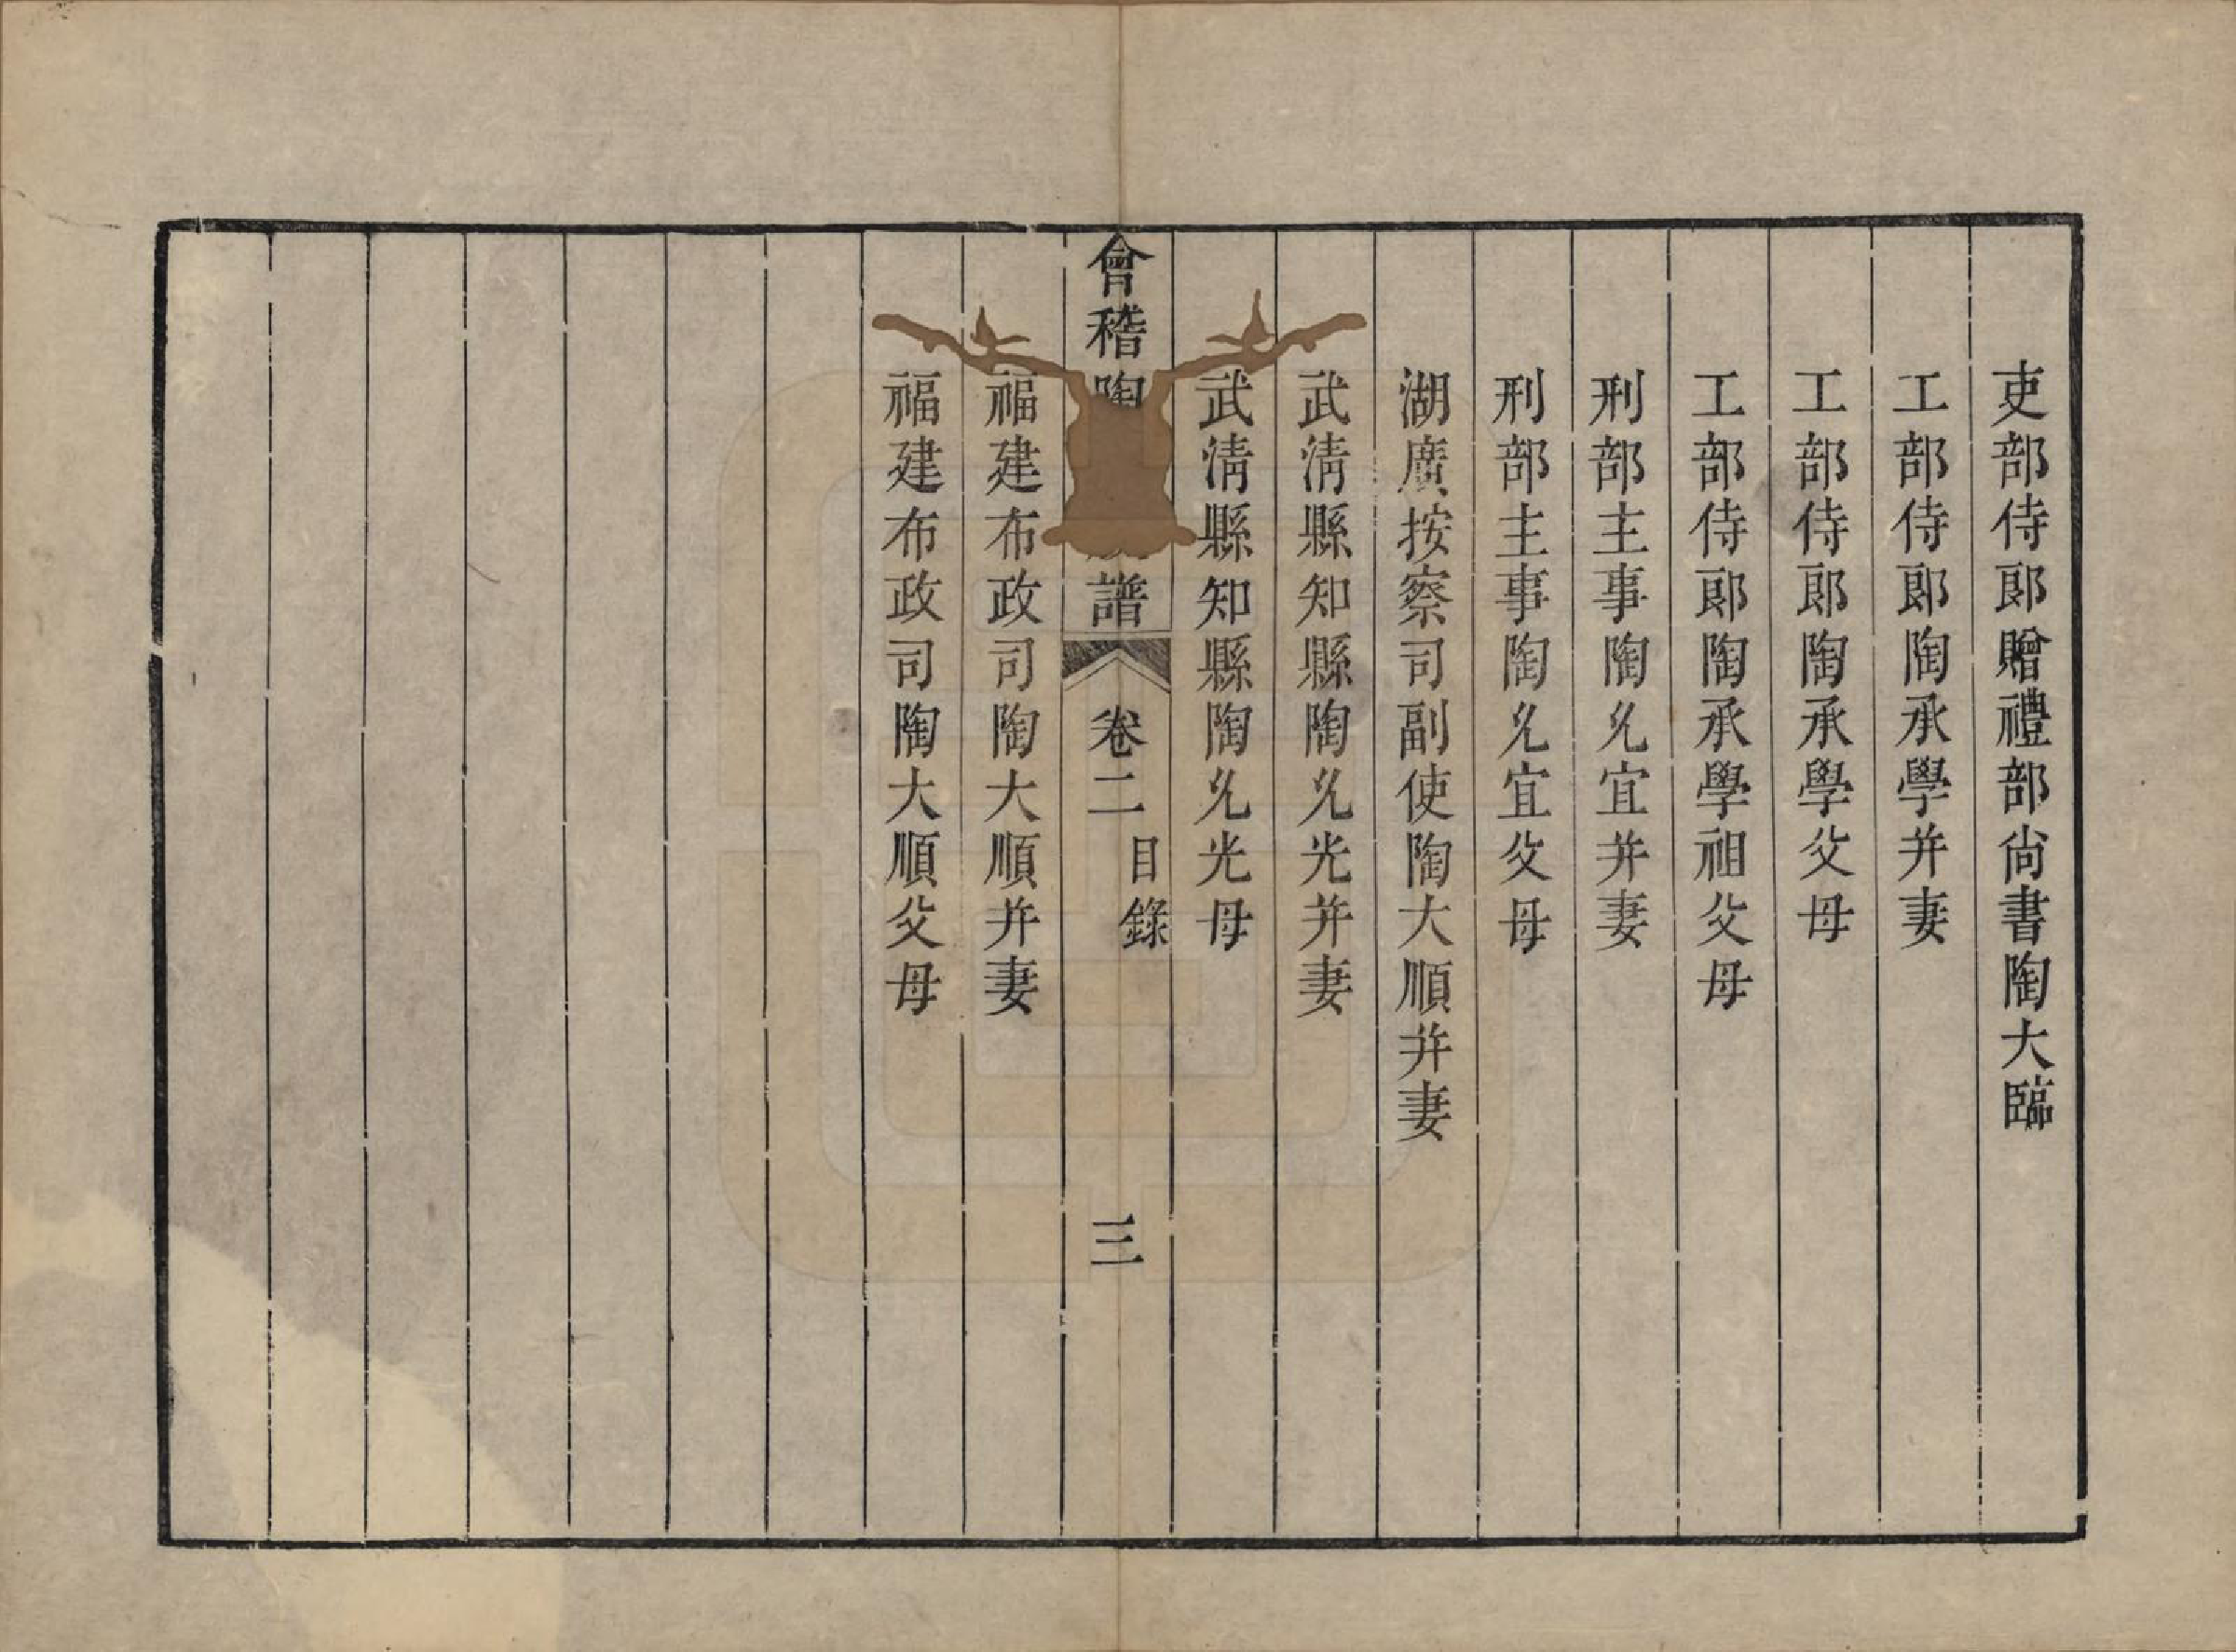 吏部侍郎贈禮部尚書陶大臨
工部侍郎陶承學并妻
工部侍郎陶承學父母
工部侍郎陶承學祖父母
刑部主事陶允宜并妻
刑部主事陶允宜父母
湖廣按察司副使陶大順并妻
武清縣知縣陶允光并妻
武清縣知縣陶允光母
會稽陶譜 卷二 目錄 三
福建布政司陶大順并妻
福建布政司陶大順父母